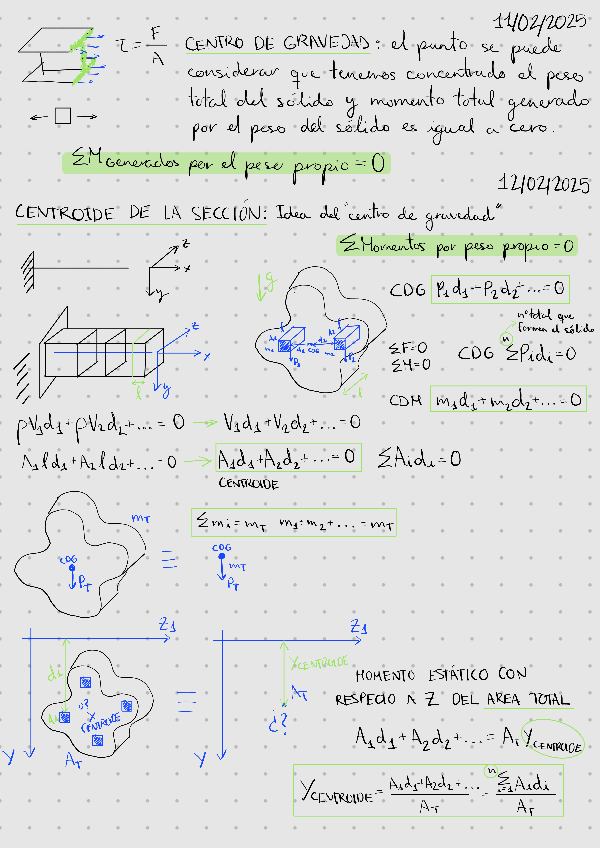 11/02/2025
τ = F/A
CENTRO DE GRAVEDAD: el punto se puede
considerar que tenemos concentrado el peso
total del sólido y momento total generado
por el peso del sólido es igual a cero.
ΣM Generados por el peso propio = 0
12/02/2025
CENTROIDE DE LA SECCIÓN: Idea del "centro de gravedad"
ΣMomentos por peso propio = 0
z
x
y
g
CDG P1d1 - P2d2 + ... = 0
nº total que
forman el sólido
n
ΣF=0
ΣM=0
CDG ΣPidi = 0
z
x
y
l
CDG
P1
P2
l
CDM m1d1 + m2d2 + ... = 0
ρV1d1 + ρV2d2 + ... = 0 → V1d1 + V2d2 + ... = 0
A1ld1 + A2ld2 + ... = 0 → A1d1 + A2d2 + ... = 0 ΣAidi = 0
CENTROIDE
mT
Σmi = mT m1 + m2 + ... = mT
CDG
PT
=
CDG
mT
PT
Z1
Z1
d1
XCENTROIDE
¿?
X
CENTROIDE
AT
Y
=
AT
¿?
Y
MOMENTO ESTÁTICO CON
RESPECTO A Z DEL AREA TOTAL
A1d1 + A2d2 + ... = AT YCENTROIDE
YCENTROIDE = (A1d1 + A2d2 + ...)/AT = (Σ i=1 n Aidi)/AT